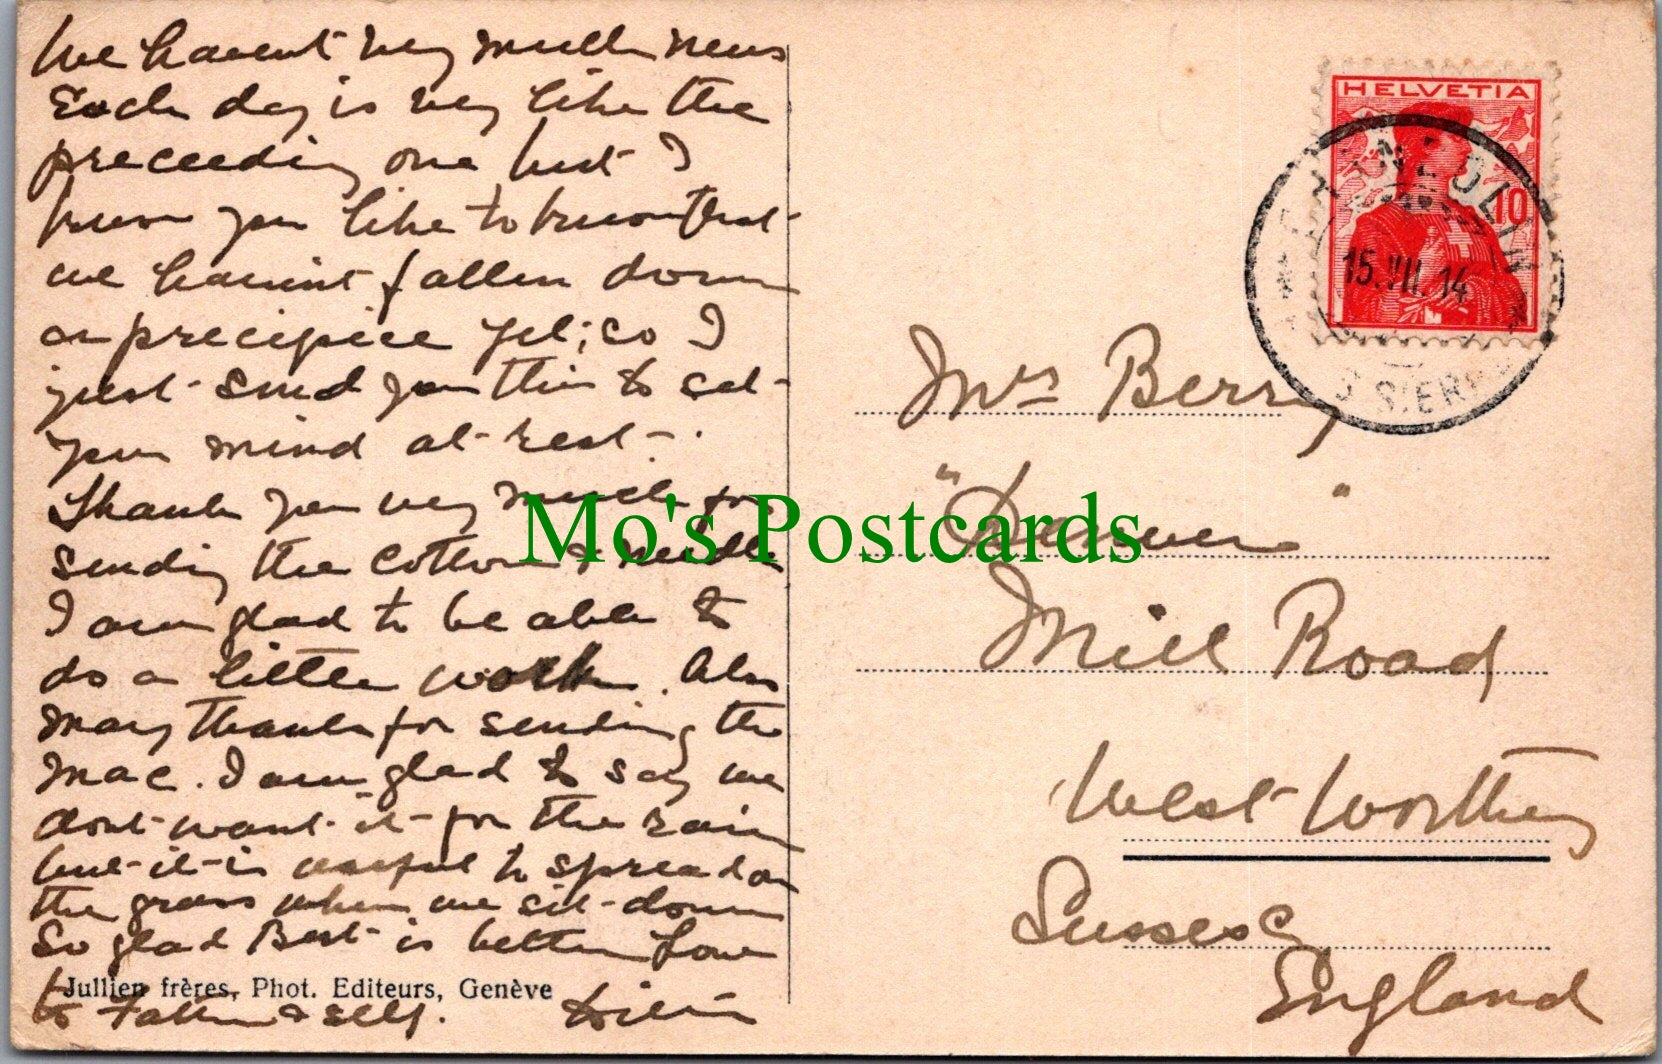 We havent very much news
Each day is very like the
preceeding one but I
know you like to know that
we havent fallen down
a precipice yet; so I
just send you this to set
your mind at rest.
Thank you very much for
sending the cotton & needle
I am glad to be able to
do a little work. Also
many thanks for sending the
Mac. I am glad to say we
dont want it for the rain
but it is useful to spread on
the grass when we sit down
So glad Bert is better Love
to Father & self.
Jullien frères, Phot. Editeurs, Genève
HELVETIA
10
15.VII.14
SIERRE
Mrs Berry
Mill Road
West Worthing
Sussex
England
Mo's Postcards